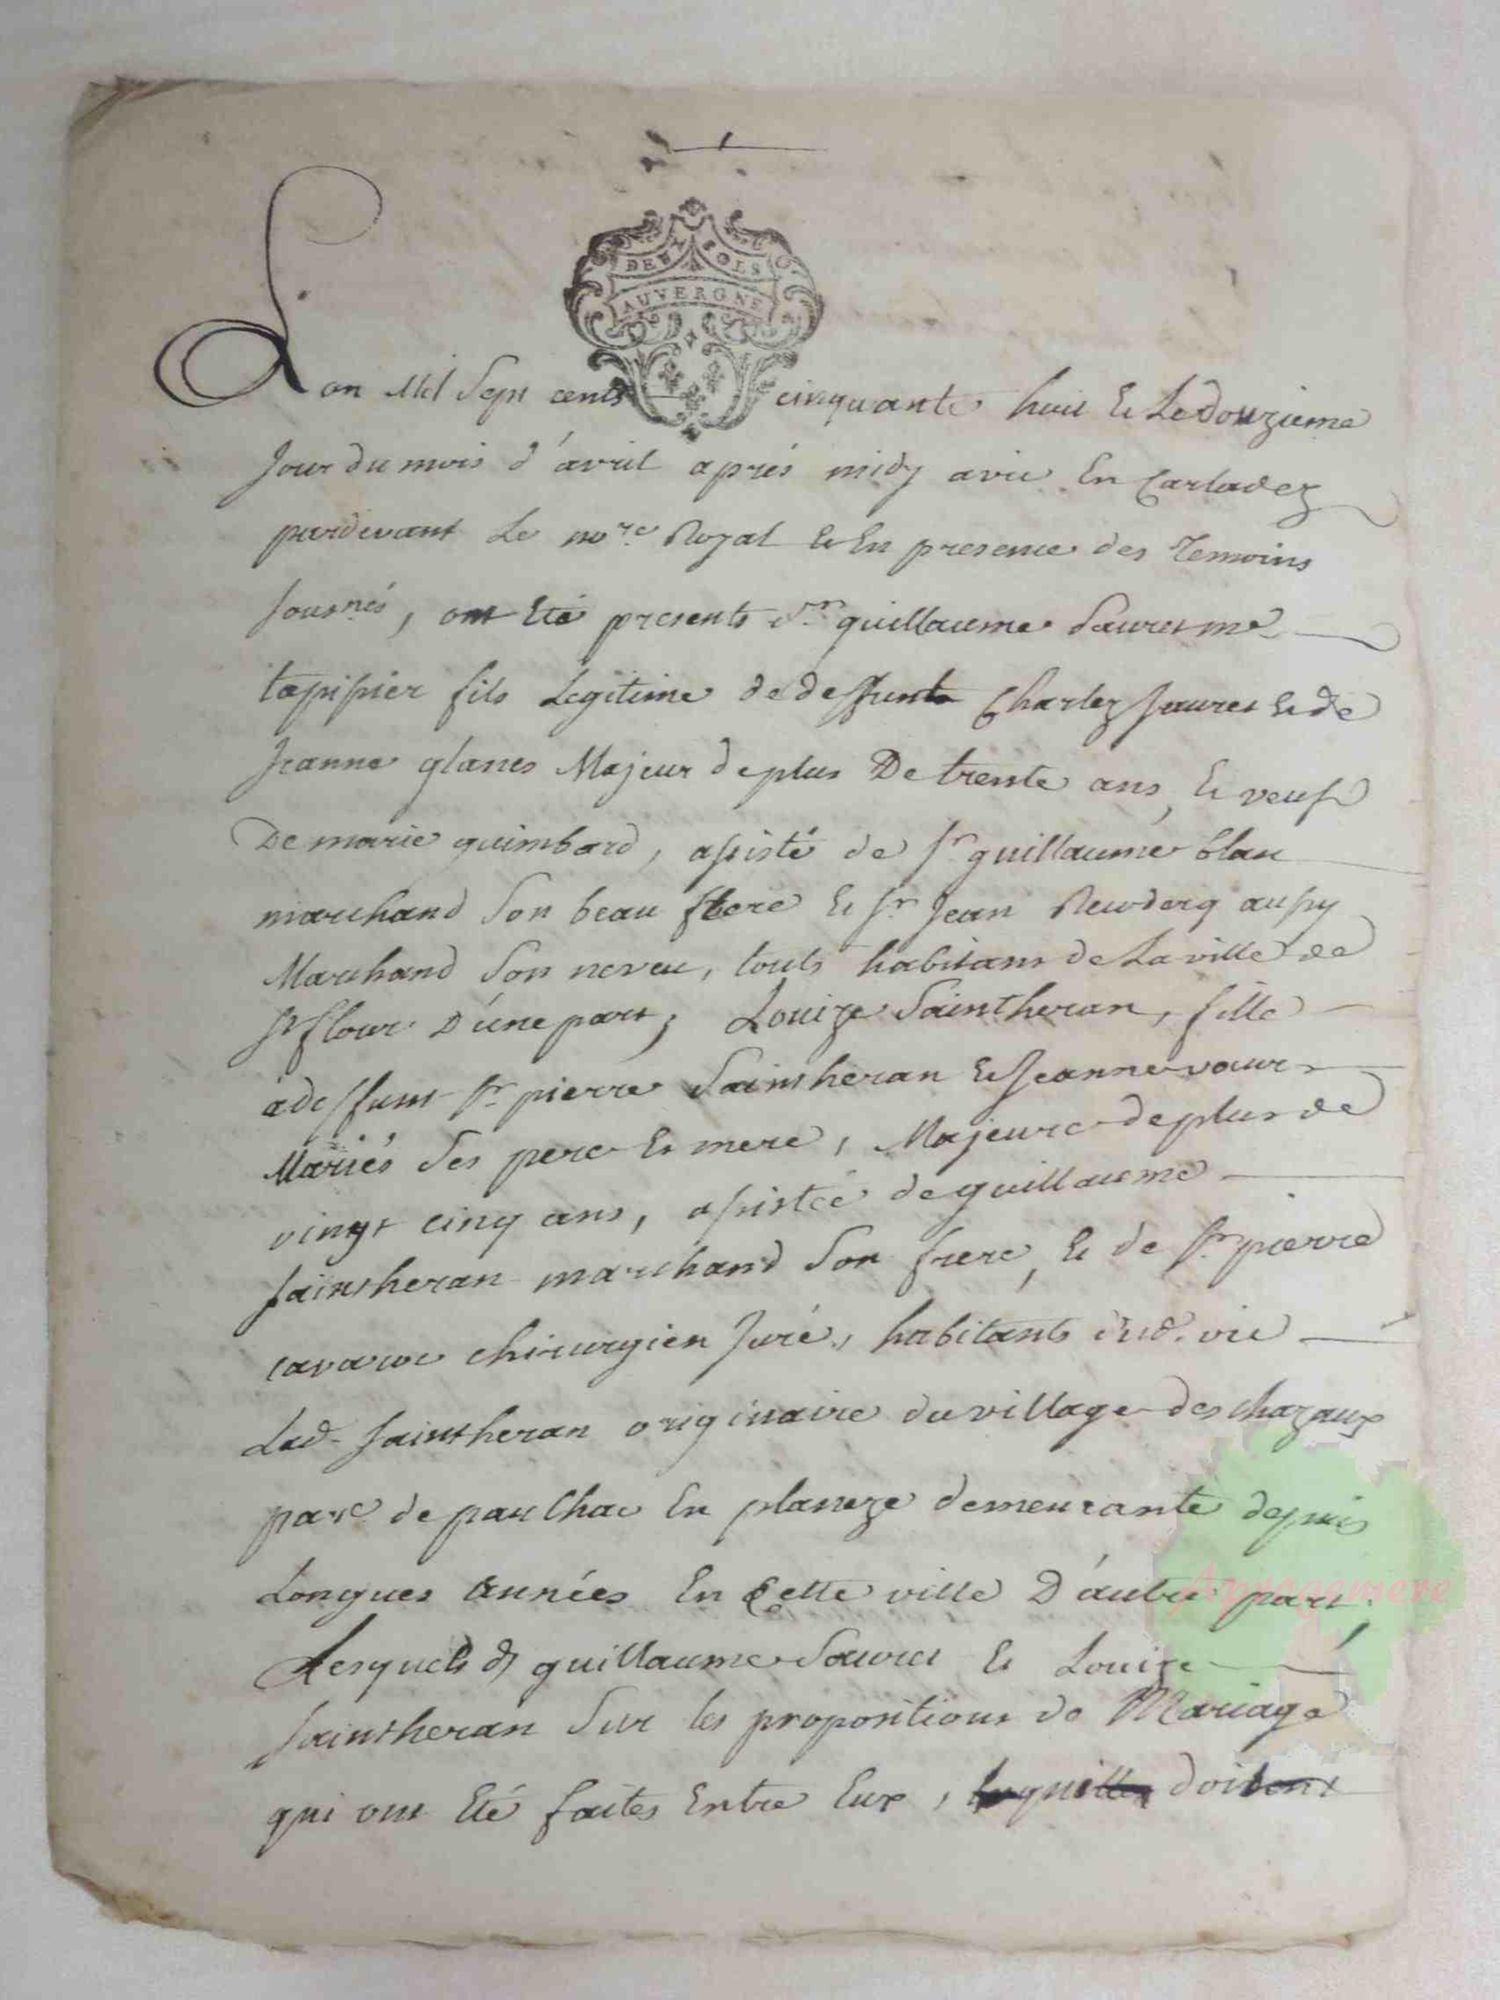 DEUX SOLS
AUVERGNE
Lan Mil Sept cents cinquante huit Et Le douzieme
Jour du mois d'avril aprés midy a vic En Carladez
pardevant Le no.re Royal Et En presence des Temoins
sousnés, ont Eté presents Sr. guillaume Sauret me
tapissier fils Legitime de deffunt Charlez Sauret Et de
Jeanne glanes Majeur de plus De trente ans, Et veuf
De marie guimbard, assisté de Sr guillaume blau
marchand Son beau frere Et Sr Jean aussy
Marchand Son neveu, touts habitans de La ville de
St flour D'une part, Louize Saintheran, fille
a deffunt Sr. pierre Saintheran Et Jeanne
Mariés Ses pere Et mere, Majeure de plus de
vingt cinq ans, assistée de guillaume
Saintheran marchand Son frere, Et de Sr. pierre
chirurgien Juré, habitants dud. vic
Lad. Saintheran originaire du village des chazaux
par.e de paulhac En planeze demeurante depuis
Longues années En Cette ville D'autre part.
Lesquels ds guillaume Sauret Et Louize
Saintheran Sur les propositions de Mariage
qui ont Eté faites Entre Eux, doivent
Auvragemere